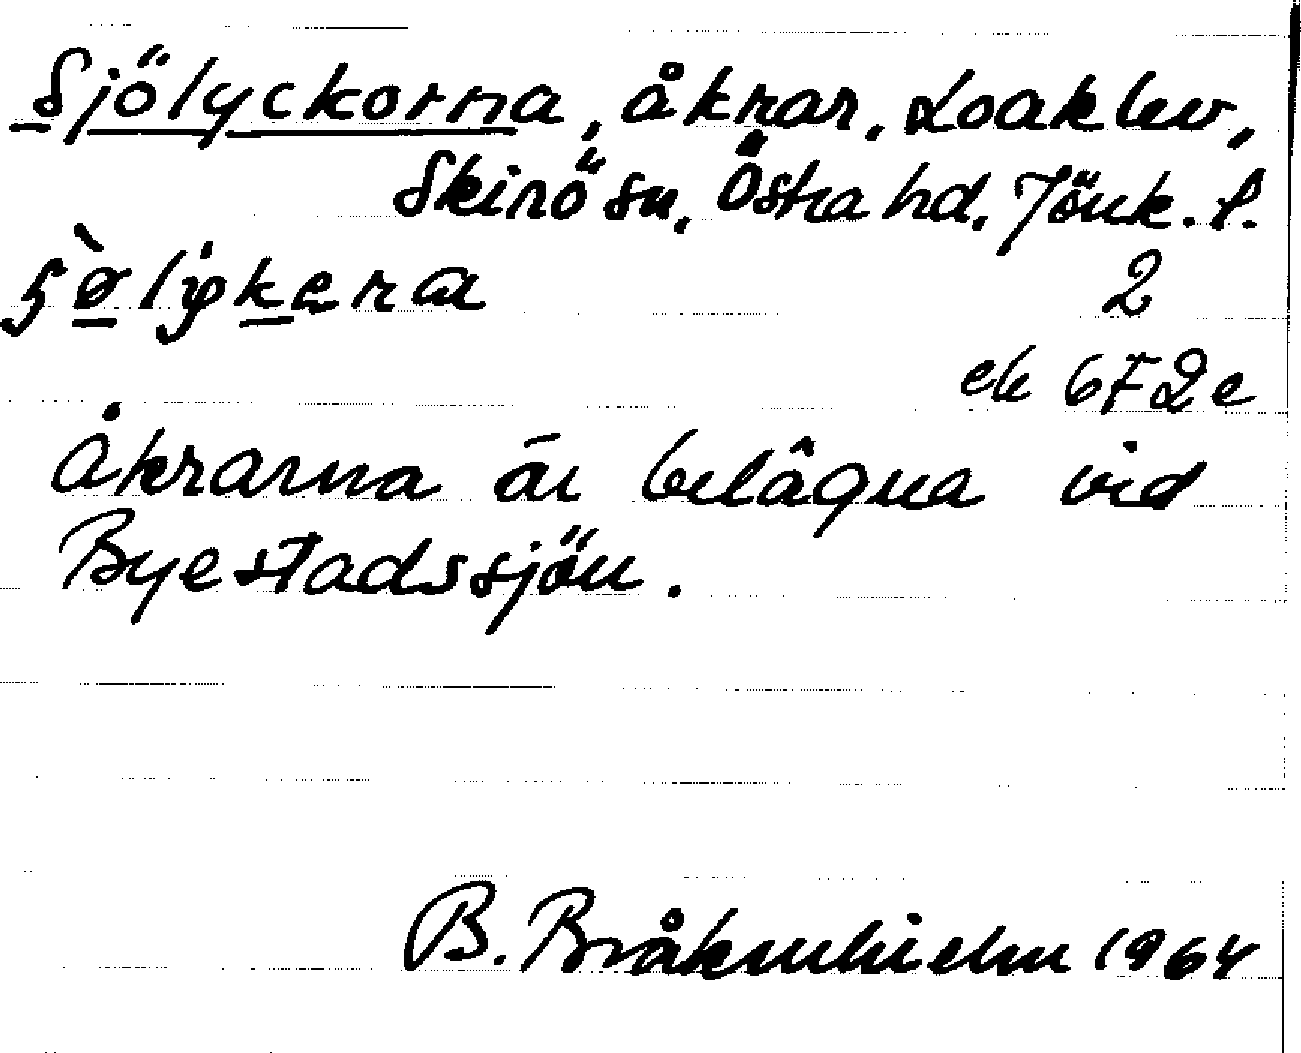 Sjölyckorna, åkrar, Loaklev,
Skirö sn, Östra hd, Jönk. l.
2
ek 6F2e
Åkrarna är belägna vid
Byestadssjön.
B. Bråkenhielm 1964